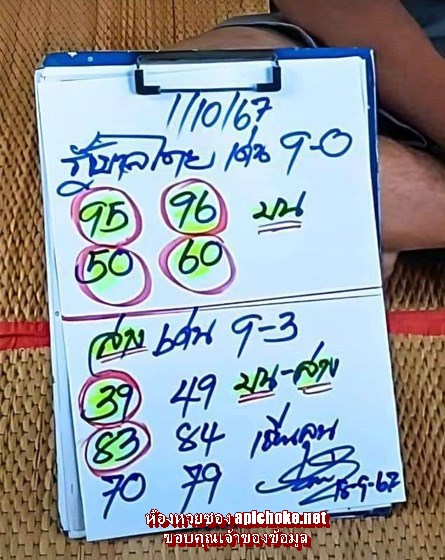 1/10/67
รัฐบาลไทย เด่น 9-0
95 96 บน
50 60
ล่าง เด่น 9-3
39 49 บน-ล่าง
83 84
70 79 18-9-67
ห้องหวยซอง apichoke.net
ขอบคุณเจ้าของข้อมูล